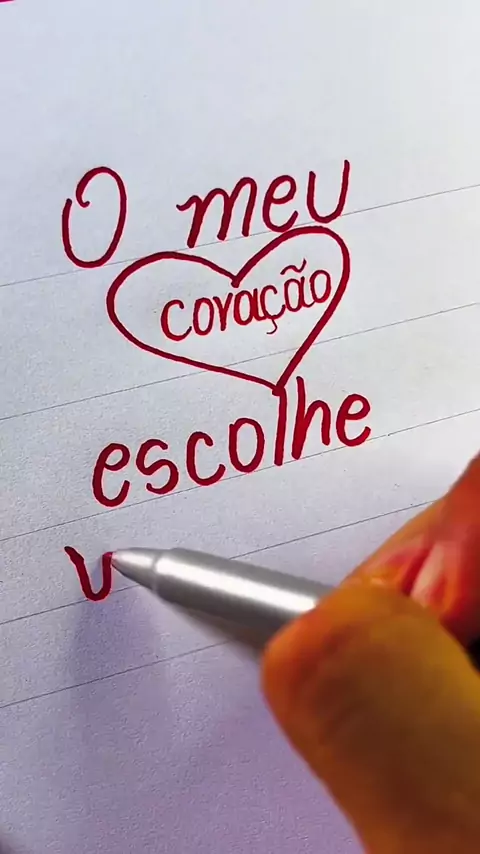 O meu
coração
escolhe
v